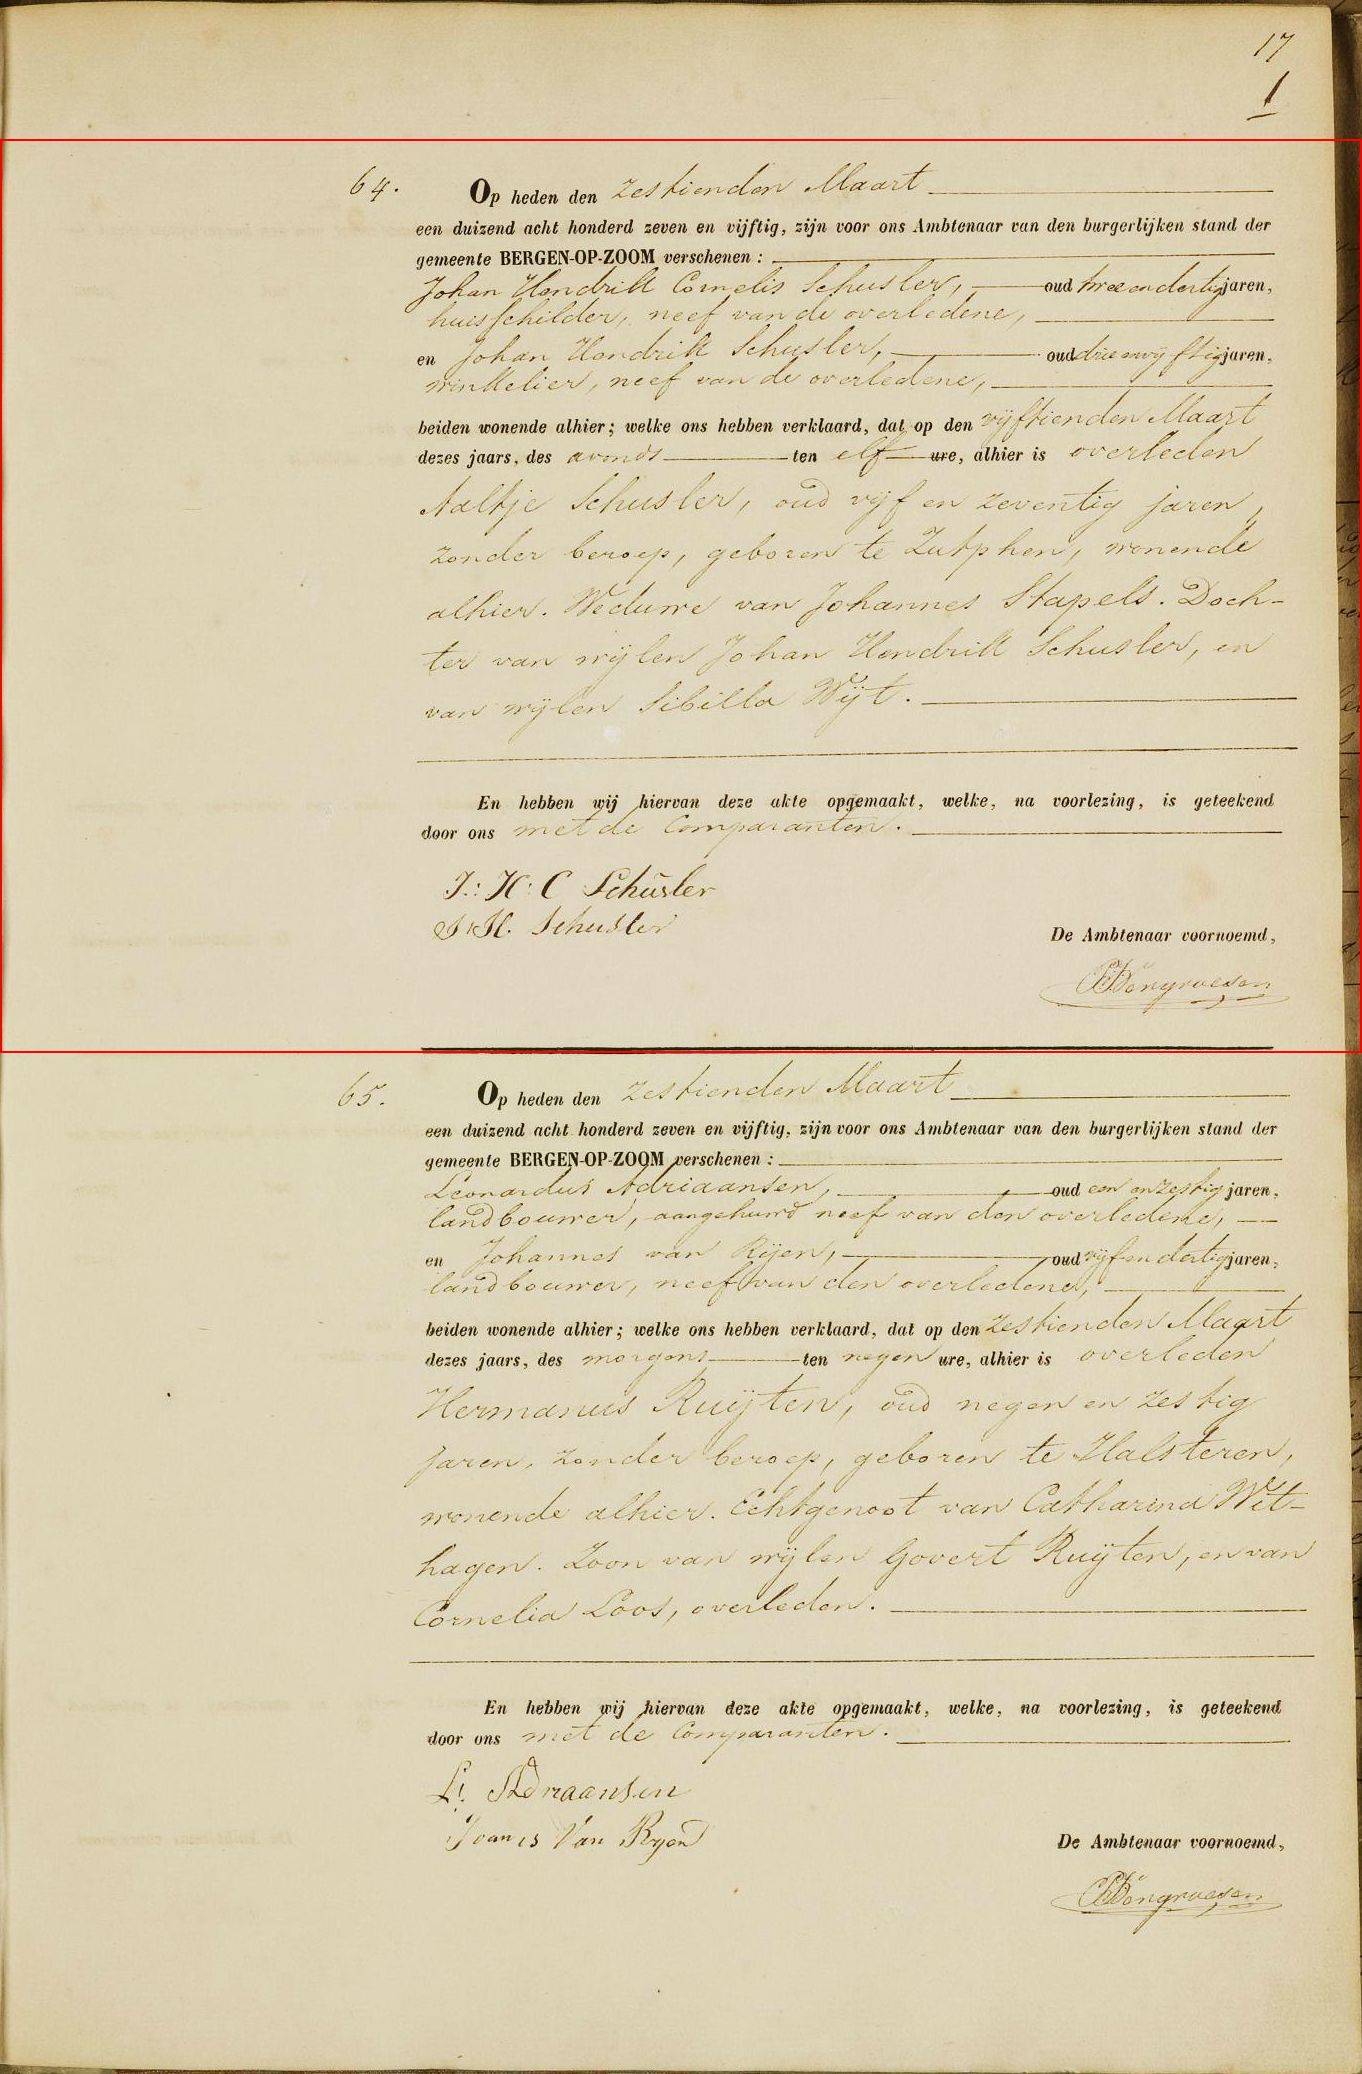 17
1
64.
Op heden den zestienden Maart
een duizend acht honderd zeven en vijftig, zijn voor ons Ambtenaar van den burgerlijken stand der
gemeente BERGEN-OP-ZOOM verschenen :
Johan Hendrik Cornelis Schusler, oud twee en dertig jaren,
huisschilder, neef van de overledene,
en Johan Hendrik Schusler, oud drie en vijftig jaren,
winkelier, neef van de overledene,
beiden wonende alhier; welke ons hebben verklaard, dat op den vijftienden Maart
dezes jaars, des avonds ten elf ure, alhier is overleden
Aaltje Schusler, oud vijf en zeventig jaren,
zonder beroep, geboren te Zutphen, wonende
alhier. Weduwe van Johannes Stapels. Doch-
ter van wijlen Johan Hendrik Schusler, en
van wijlen Sibilla Wijt.
En hebben wij hiervan deze akte opgemaakt, welke, na voorlezing, is geteekend
door ons met de Comparanten.
J: H: C Schusler
J H. Schusler
De Ambtenaar voornoemd,
65.
Op heden den zestienden Maart
een duizend acht honderd zeven en vijftig, zijn voor ons Ambtenaar van den burgerlijken stand der
gemeente BERGEN-OP-ZOOM verschenen :
Leonardus Adriaansen, oud een en zestig jaren,
landbouwer, aangehuwd neef van den overledene,
en Johannes van Rijen, oud vijf en dertig jaren,
landbouwer, neef van den overledene,
beiden wonende alhier; welke ons hebben verklaard, dat op den zestienden Maart
dezes jaars, des morgens ten negen ure, alhier is overleden
Hermanus Ruijten, oud negen en zestig
jaren, zonder beroep, geboren te Halsteren,
wonende alhier. Echtgenoot van Catharina Wit-
hagen. Zoon van wijlen Govert Ruijten, en van
Cornelia Loos, overleden.
En hebben wij hiervan deze akte opgemaakt, welke, na voorlezing, is geteekend
door ons met de Comparanten.
L. Adriaansen
Joanis Van Ryen
De Ambtenaar voornoemd,